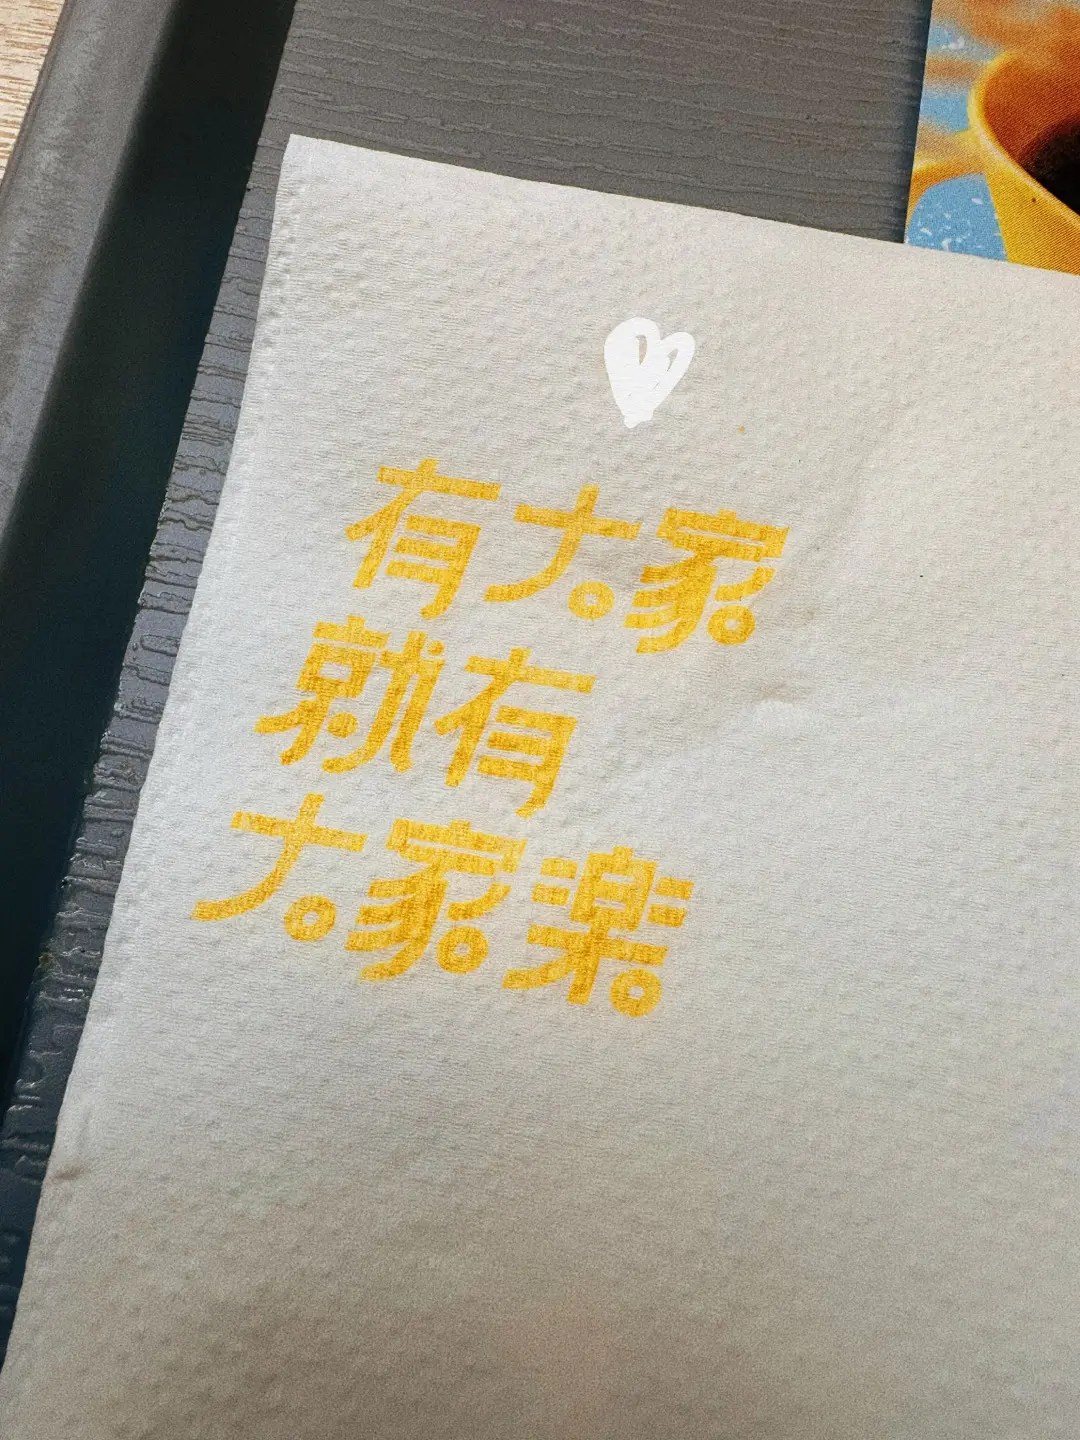 有大家
就有
大家楽